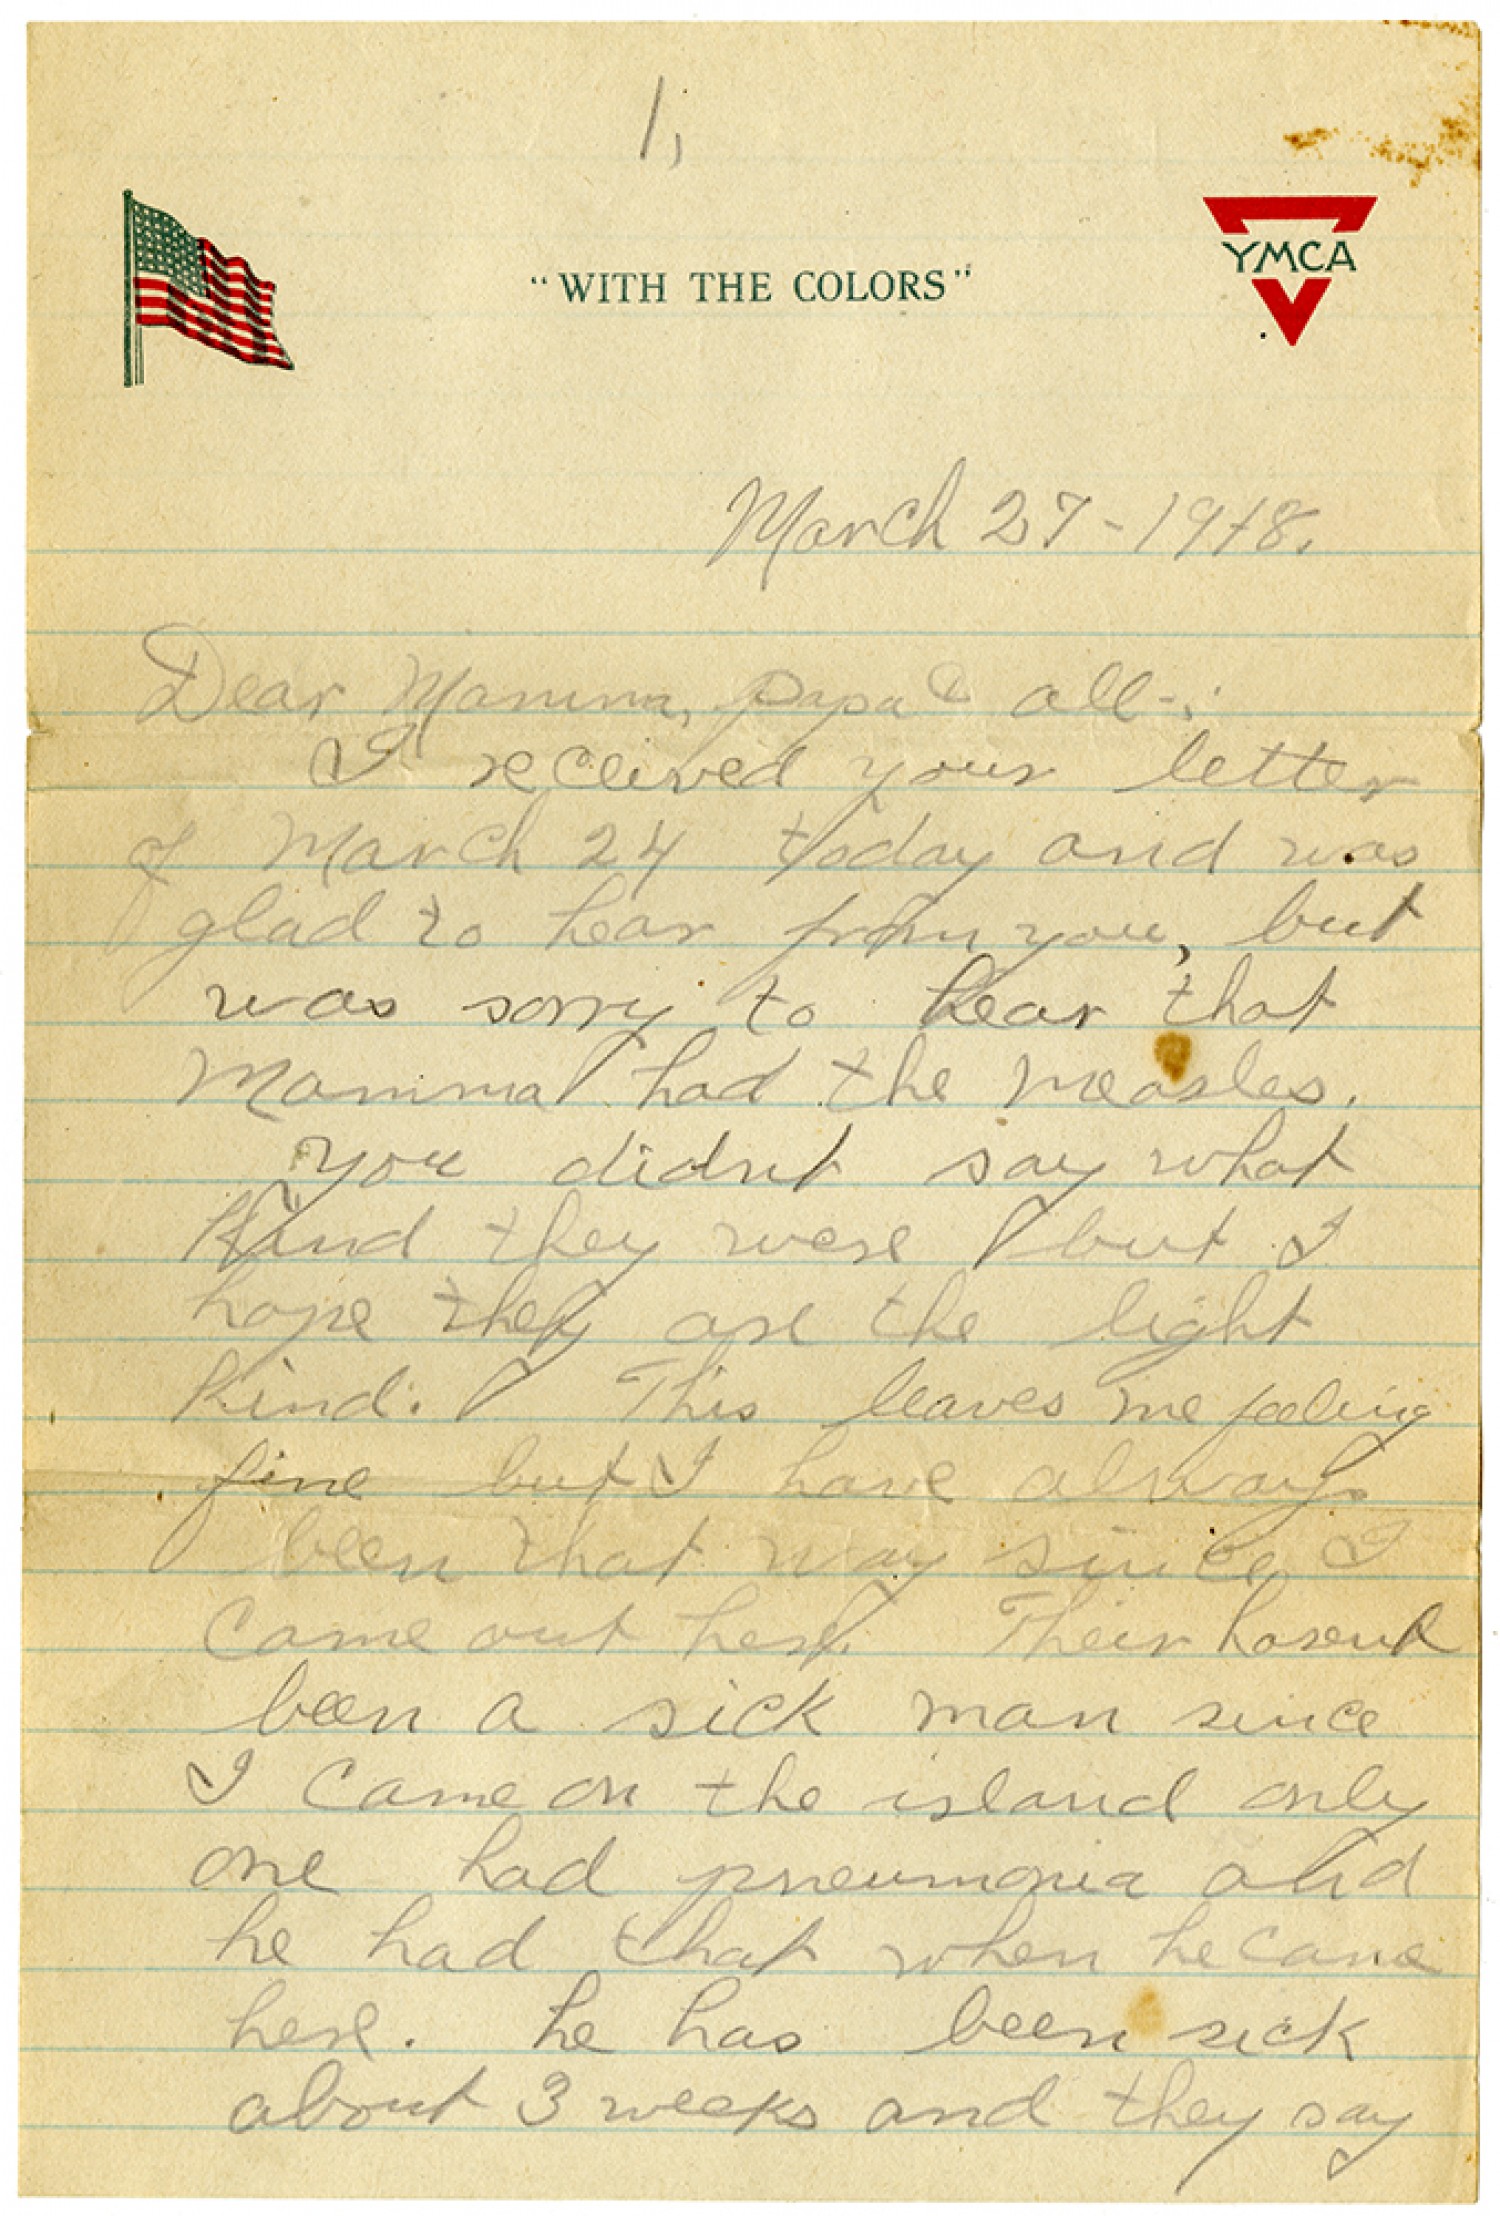 1,
"WITH THE COLORS"
YMCA
March 27-1918.
Dear Mamma, Papa & all-:
I received your letter
of March 24 today and was
glad to hear from you, but
was sorry to hear that
Mamma had the measles.
You didnt say what
kind they were but I
hope they are the light
kind. This leaves me feeling
fine but I have always
been that way since I
came out here. Their havent
been a sick man since
I came on the island only
one had pneumonia and
he had that when he came
here. he has been sick
about 3 weeks and they say